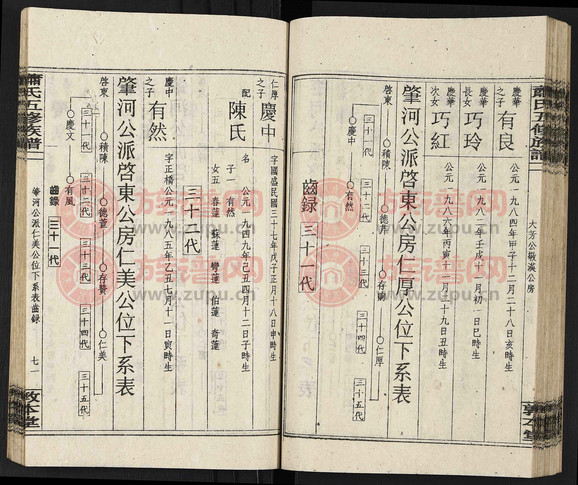 蕭氏五修族譜
大芳公毅溪公房
慶華之子 有良 公元一九八四年甲子十二月二十八日亥時生
慶華長女 巧玲 公元一九八二年壬戌十一月初一日巳時生
慶華次女 巧紅 公元一九八六年丙寅十一月十九日丑時生
肇河公派啓東公房仁厚公位下系表
三十一代 三十二代 三十三代 三十四代 三十五代
啓東 積陳 德芹 仁厚
慶中 有然
齒録 三十一代
敦本堂
仁厚之子 慶中 字國盛民國三十七年戊子正月十八日申時生
配 陳氏 名 公元一九四九年己丑四月十二日子時生
子一 有然
女五 春蓮 蘇蓮 彎蓮 伯蓮 奇蓮
三十二代
慶中之子 有然 字正橋公元一九八五年乙丑七月十一日寅時生
肇河公派啓東公房仁美公位下系表
三十一代 三十二代 三十三代 三十四代 三十五代
啓東 積陳 德萱 存賢 仁美
慶文 有風
齒録 三十一代
蕭氏五修族譜
肇河公派仁美公位下系表齒録
七一
敦本堂
族譜网
www.zupu.cn